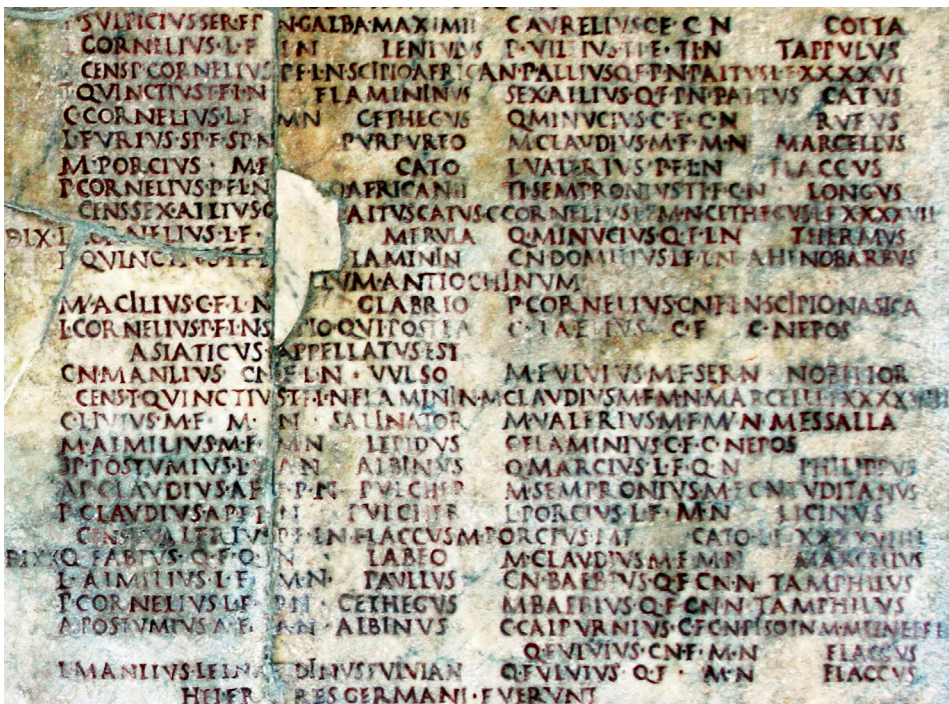 P·SVLPICIVS SER·F·P N·GALBA·MAXIM C·AVRELIVS C·F·C·N COTTA
L·CORNELIVS·L·F L·N LENTVLVS P·VILLIVS·TI·F·TI·N TAPPVLVS
CENS·P·CORNELIVS P·F·L·N·SCIPIO AFRICAN·P·AILIVS Q·F·P·N·PAITVS L·F XXXXVI
T·QVINCTIVS·T·F·L·N FLAMININVS SEX·AILIVS·Q·F·P·N·PAITVS CATVS
C·CORNELIVS·L·F M·N CETHEGVS Q·MINVCIVS·C·F·C·N RVFVS
L·FVRIVS·SP·F·SP·N PVRPVREO M·CLAVDIVS·M·F·M·N MARCELLVS
M·PORCIVS · M·F CATO L·VALERIVS·P·F·L·N FLACCVS
P·CORNELIVS·P·F·L·N AFRICAN TI·SEMPRONIVS·TI·F·C·N LONGVS
CENS SEX·AILIVS AITVS CATVS C·CORNELIVS·L·F·M·N·CETHEGVS L·F XXXXVII
L· ORNELIVS·L·F· MERVLA Q·MINVCIVS·Q·F·L·N THERMVS
QVINC LAMININ CN·DOMITIVS L·F·L·N AHENOBARBVS
LVM·ANTIOCHINVM
M·ACILIVS·C·F·L·N GLABRIO P·CORNELIVS·CN·F·L·N·SCIPIO NASICA
L·CORNELIVS·P·F·L·N·S PIO·QVI POSTEA C·LAELIVS C·F C·NEPOS
ASIATICVS APPELLATVS EST
CN·MANLIVS CN F·L·N · VVLSO M·FVLVIVS·M·F·SER·N NOBILIOR
CENS·T·QVINCTIVS T·F·L·N·FLAMININ·M·CLAVDIVS·M·F·M·N·MARCELL L·F XXXXVIII
C·LIVIVS·M·F· M· N SALINATOR M·VALERIVS·M·F·M·N MESSALLA
M·AIMILIVS·M·F M·N LEPIDVS C·FLAMINIVS·C·F·C·NEPOS
SP·POSTVMIVS·L A·N ALBINVS Q·MARCIVS·L·F·Q·N PHILIPPVS
AP·CLAVDIVS·AP F·P·N PVLCHER M·SEMPRONIVS·M·F C·N TVDITANVS
P·CLAVDIVS·AP·F N PVLCHER L·PORCIVS·L·F· M·N LICINVS
CENS· VALERIVS P·F·L·N·FLACCVS M·PORCIVS·M·F CATO·L·F XXXXVIIII
Q·FABIVS·Q·F·Q· N LABEO M·CLAVDIVS·M·F·M·N MARCELLVS
L·AIMILIVS·L·F· M·N· PAVLLVS CN·BAEBIVS·Q·F CN·N· TAMPHILVS
P·CORNELIVS·L·F P·N · CETHEGVS M·BAEBIVS·Q·F CN·N TAMPHILVS
A·POSTVMIVS·A·F· A·N · ALBINVS C·CALPVRNIVS·C·F·C·N·PISO IN M·M
Q·FVLVIVS CN·F·M·N FLACCVS
L·MANLIVS·L·F·L·N DINVS FVLVIAN Q·FVLVIVS·Q·F · M·N FLACCVS
HEI FR RES GERMANI·FVERVNT